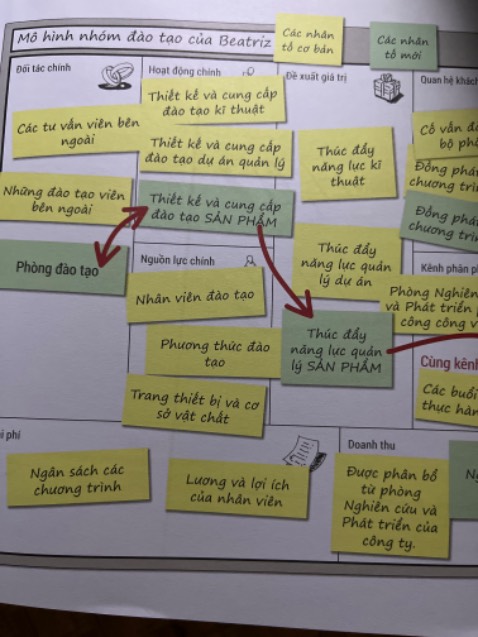 Mô hình nhóm đào tạo của Beatriz
Các nhân
tố cơ bản
Các nhân
tố mới
Đối tác chính
Các tư vấn viên bên
ngoài
Những đào tạo viên
bên ngoài
Phòng đào tạo
Hoạt động chính
Thiết kế và cung cấp
đào tạo kĩ thuật
Thiết kế và cung cấp
đào tạo dự án quản lý
Thiết kế và cung cấp
đào tạo SẢN PHẨM
Nguồn lực chính
Nhân viên đào tạo
Phương thức đào
tạo
Trang thiết bị và cơ
sở vật chất
Đề xuất giá trị
Thúc đẩy
năng lực kĩ
thuật
Thúc đẩy
năng lực quản
lý dự án
Thúc đẩy
năng lực quản
lý SẢN PHẨM
Quan hệ khách
Cố vấn
bộ
Đồng
chương
Đồng
Kênh phân
Phòng Nghiên
và Phát triển
công công
Cùng kênh
Các buổi
thực
phí
Ngân sách các
chương trình
Lương và lợi ích
của nhân viên
Doanh thu
Được phân bổ
từ phòng
Nghiên cứu và
Phát triển của
công ty.